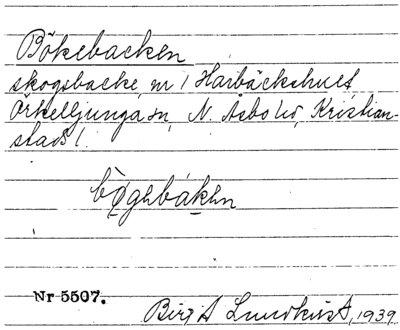 Bökebacken
skogsbacke, nr 1 Harbäckshult
Örkelljunga sn, N. Asbo hd, Kristian-
stads l.
bø̀gebáken
Nr 5507.
Birgit Lundkvist, 1939.